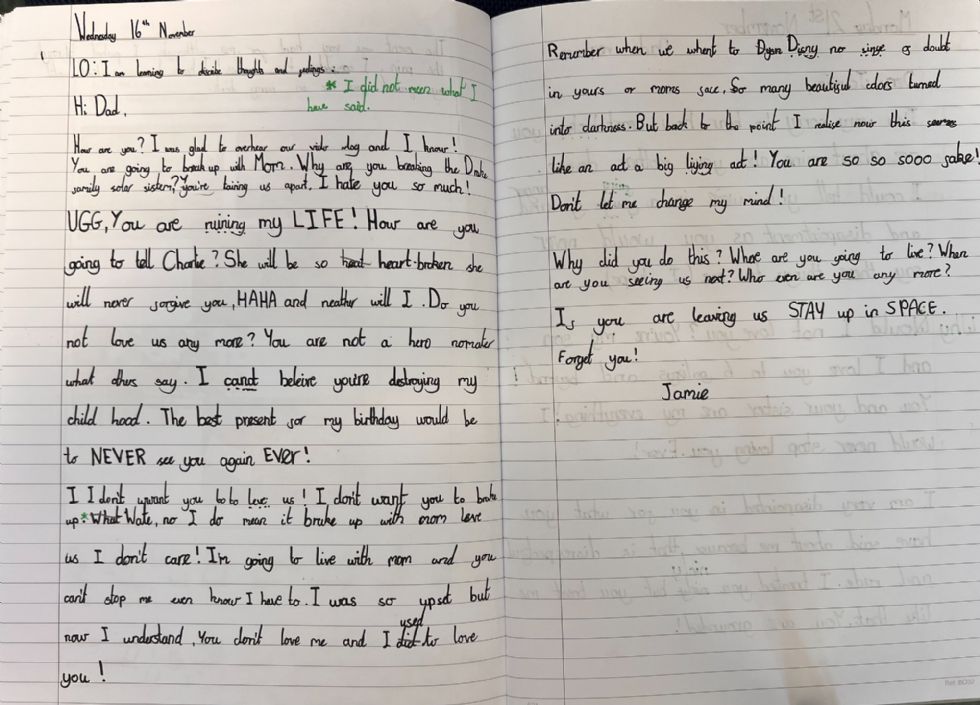 Wednesday 16th November
LO: I am learning to describe thoughts and feelings.
* I did not meen what I
have said.
Hi Dad,
How are you? I was glad to overhear our video vlog and I know!
You are going to break up with Mom. Why are you breaking the Drake
family solar sistem? You're tairing us apart. I hate you so much!
UGG, You are ruining my LIFE! How are you
going to tell Charlie? She will be so heart-broken she
will never forgive you, HAHA and neather will I. Do you
not love us any more? You are not a hero nomater
what others say. I candt beleive you're destroying my
child hood. The best present for my birthday would be
to NEVER see you again EVER!
I I don't want you to to leve us! I don't want you to brake
up.* What Wate, no I do mean it brake up with mom leve
us I don't care! I'm going to live with mom and you
can't stop me even know I have to. I was so upset but
used
now I understand, You don't love me and I did to love
you!
Remember when we whent to Disny no singe of doubt
in yours or moms face, So many beautiful colors turned
into darkness. But back to the point I realise now this
like an act a big liying act! You are so so sooo fake!
Don't let me change my mind!
Why did you do this? Where are you going to live? When
are you seeing us next? Who even are you any more?
If you are leaving us STAY up in SPACE.
Forget you!
Jamie